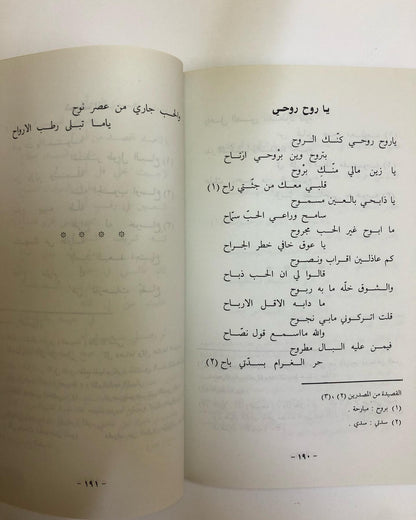 يا روح روحي
ياروح روحي كنّك الروح
بتروح وين بْروحي ارتاح
يا زين مالي منك بْروح
قلبي معك من جثتي راح (١)
يا ذابحي بالعين مسموح
سامح وراعي الحبّ سمّاح
ما ابوح غير الحب مجروح
يا عوق خافي خطر الجراح
كم عاذلين اقراب ونصوح
قالوا لي ان الحب ذباح
والشوق خلّه ما به ربوح
ما دابه الاقل الارباح
قلت اتركوني مابي نجوح
والله مااسمع قول نصّاح
فيمن عليه البال مطروح
حر الغرام بسدّتي باح (٢)
القصيدة من المصدرين (٢) ،(٣)
(١) بروح : مبارحة .
(٢) سدتي : سدي .
- ١٩٠ -
والحب جاري من عصر نوح
ياما تبلى رطب الارواح
- ١٩١ -